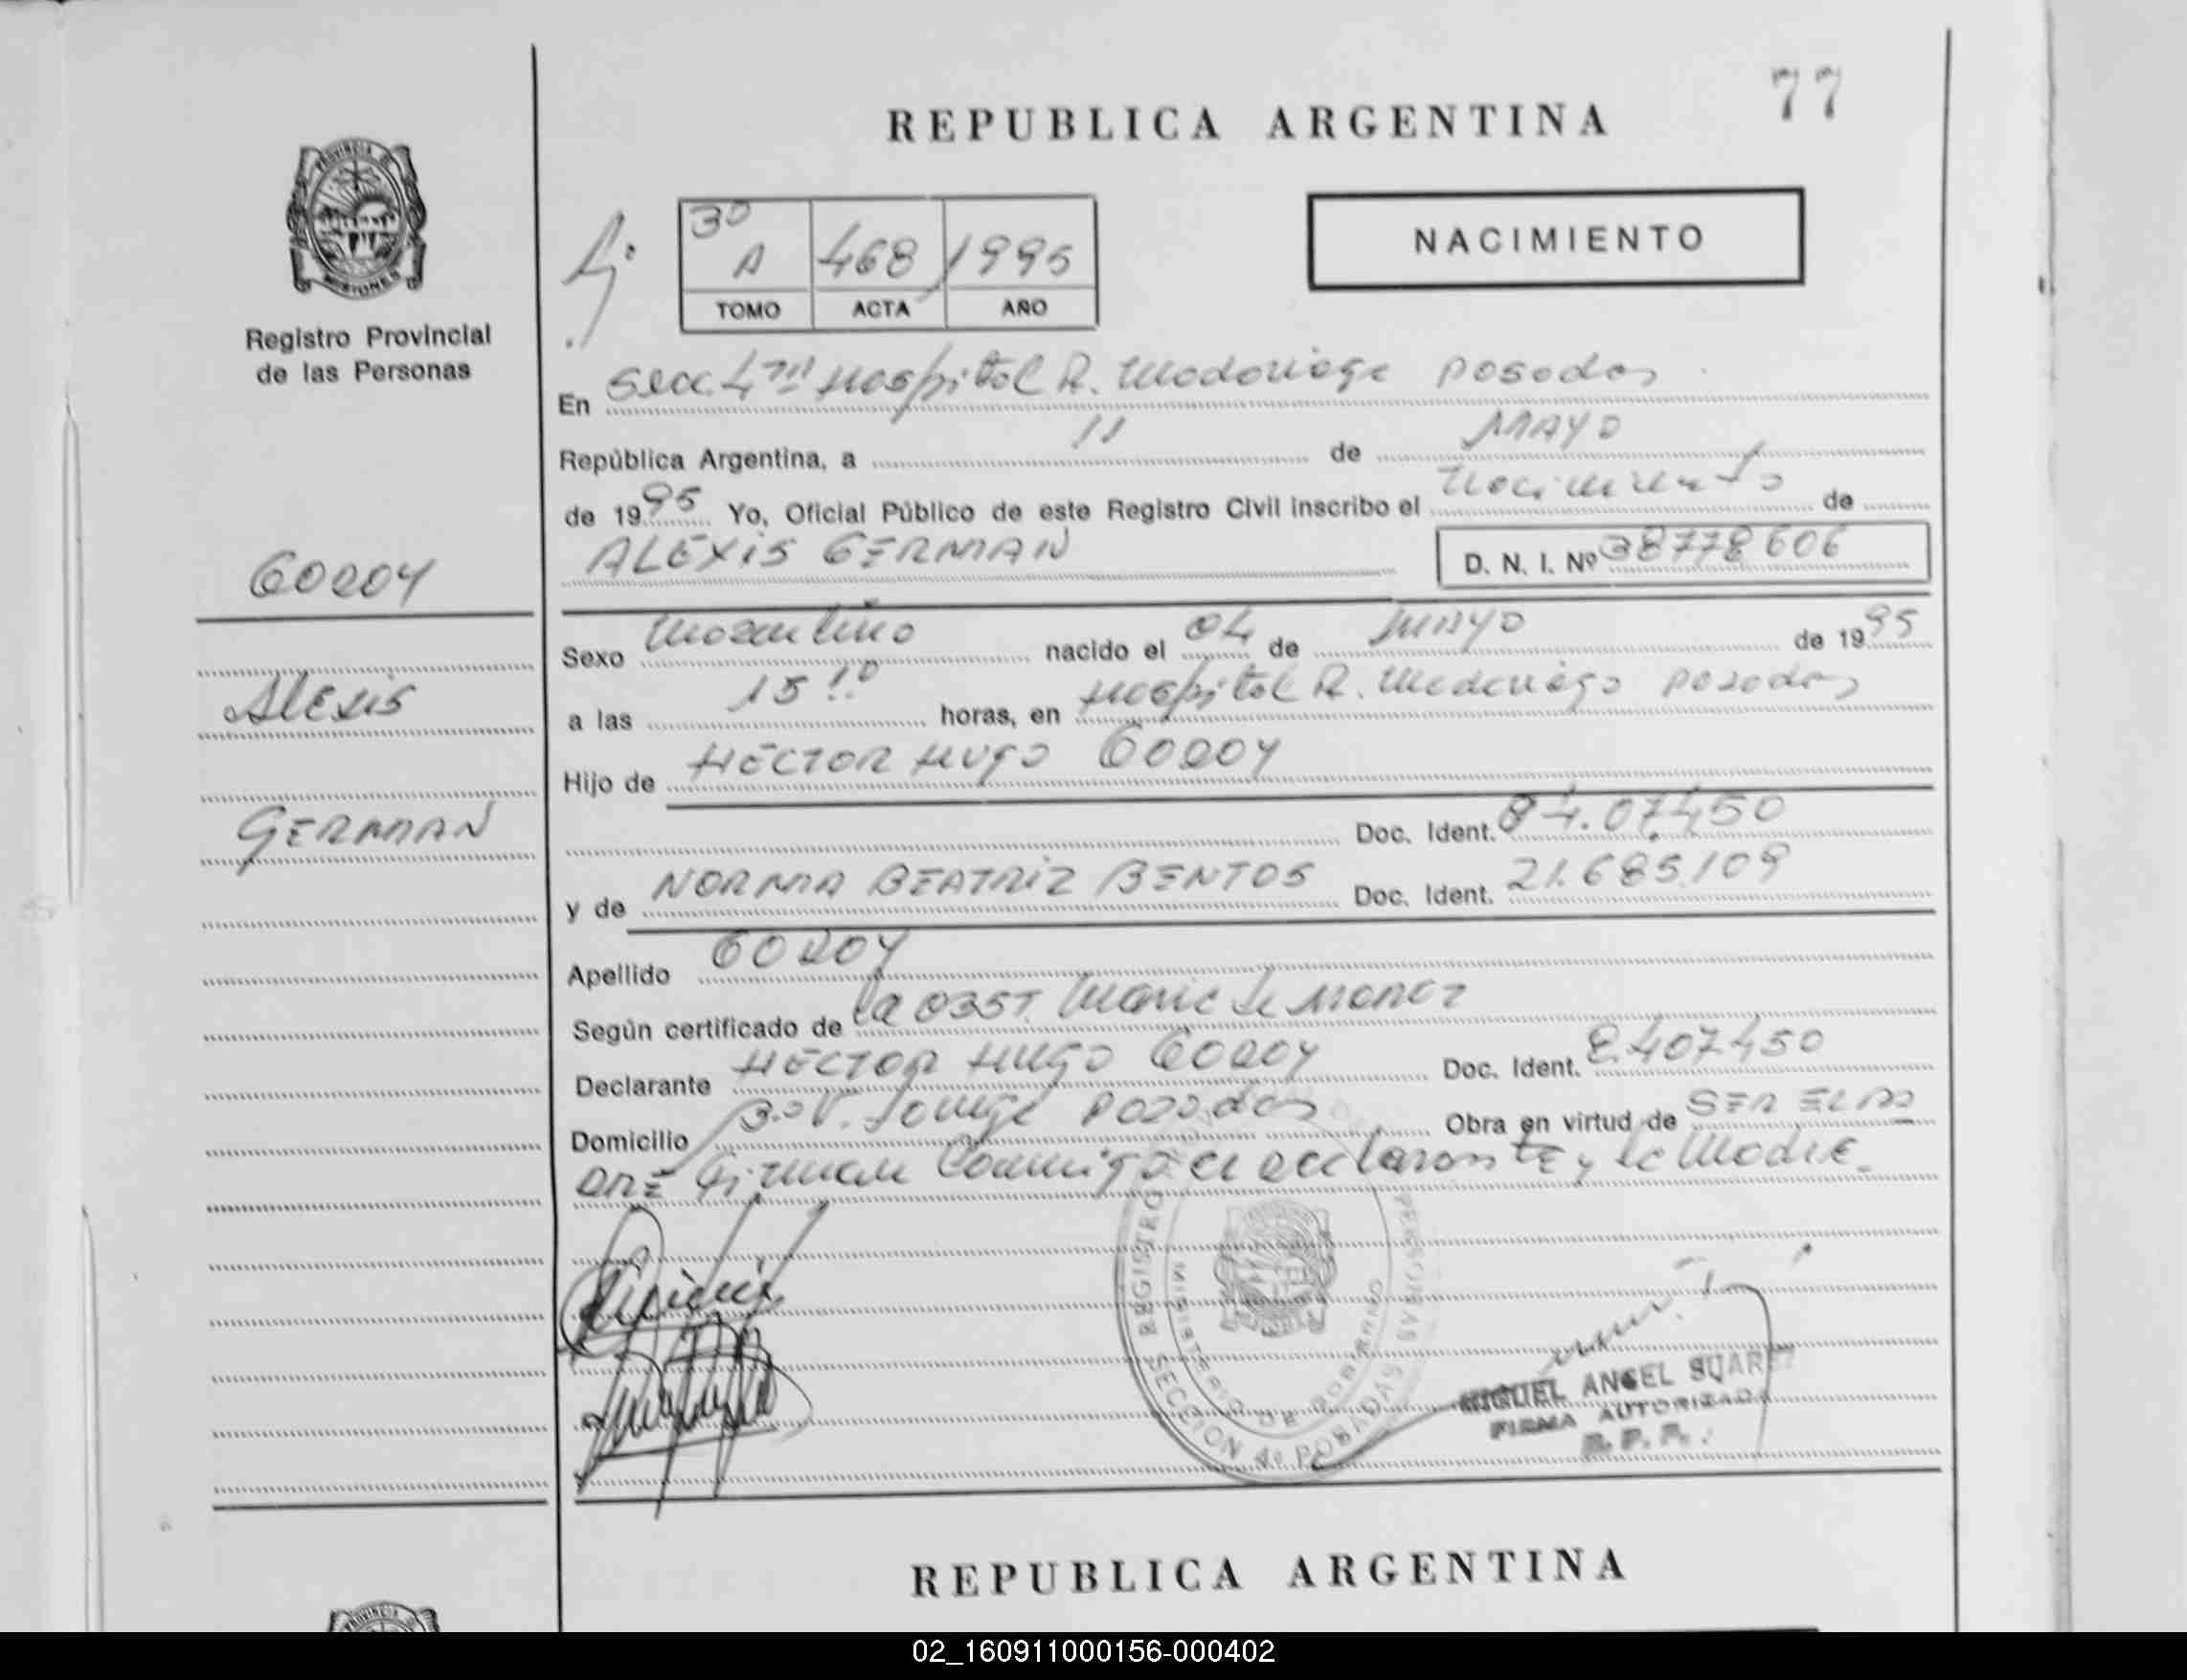 77
REPUBLICA ARGENTINA
PROVINCIA DE
MISIONES
Registro Provincial
de las Personas
3º
A 468 1995
TOMO ACTA AÑO
NACIMIENTO
En Secc. 4 Hospital R. Madariaga Posadas
República Argentina, a 11 de MAYO
de 1995 Yo, Oficial Público de este Registro Civil inscribo el nacimiento de
ALEXIS GERMAN D. N. I. Nº 38778606
GODOY
Alexis
GERMAN
Sexo masculino nacido el 04 de MAYO de 1995
a las 15 horas, en Hospital R. Madariaga Posadas
Hijo de HÉCTOR HUGO GODOY
Doc. Ident. 8407450
y de NORMA BEATRIZ BENTOS Doc. Ident. 21.685.109
Apellido GODOY
Según certificado de la OBST.
Declarante HÉCTOR HUGO GODOY Doc. Ident. 8.407.450
Domicilio Posadas Obra en virtud de SER EL PA
DRE firman conmigo el declarante y la Madre.
REGISTRO PERSONAS
MINISTERIO DE GOBIERNO
SECCION 4º POSADAS
MIGUEL ANGEL SUAREZ
FIRMA AUTORIZADA
R. P. P.
REPUBLICA ARGENTINA
PROVINCIA
02_160911000156-000402